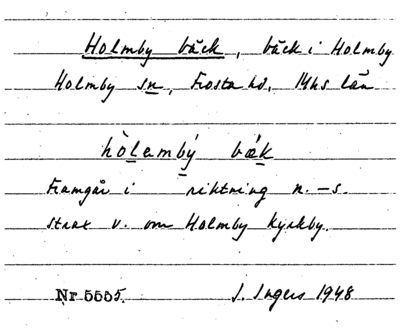 Holmby bäck, bäck i Holmby
Holmby sn, Frosta hd, Mhs län
hòlambý bǽk
Framgår i riktning n. – s.
strax v. om Holmby kyrkby.
Nr 5555. I. Ingers 1948